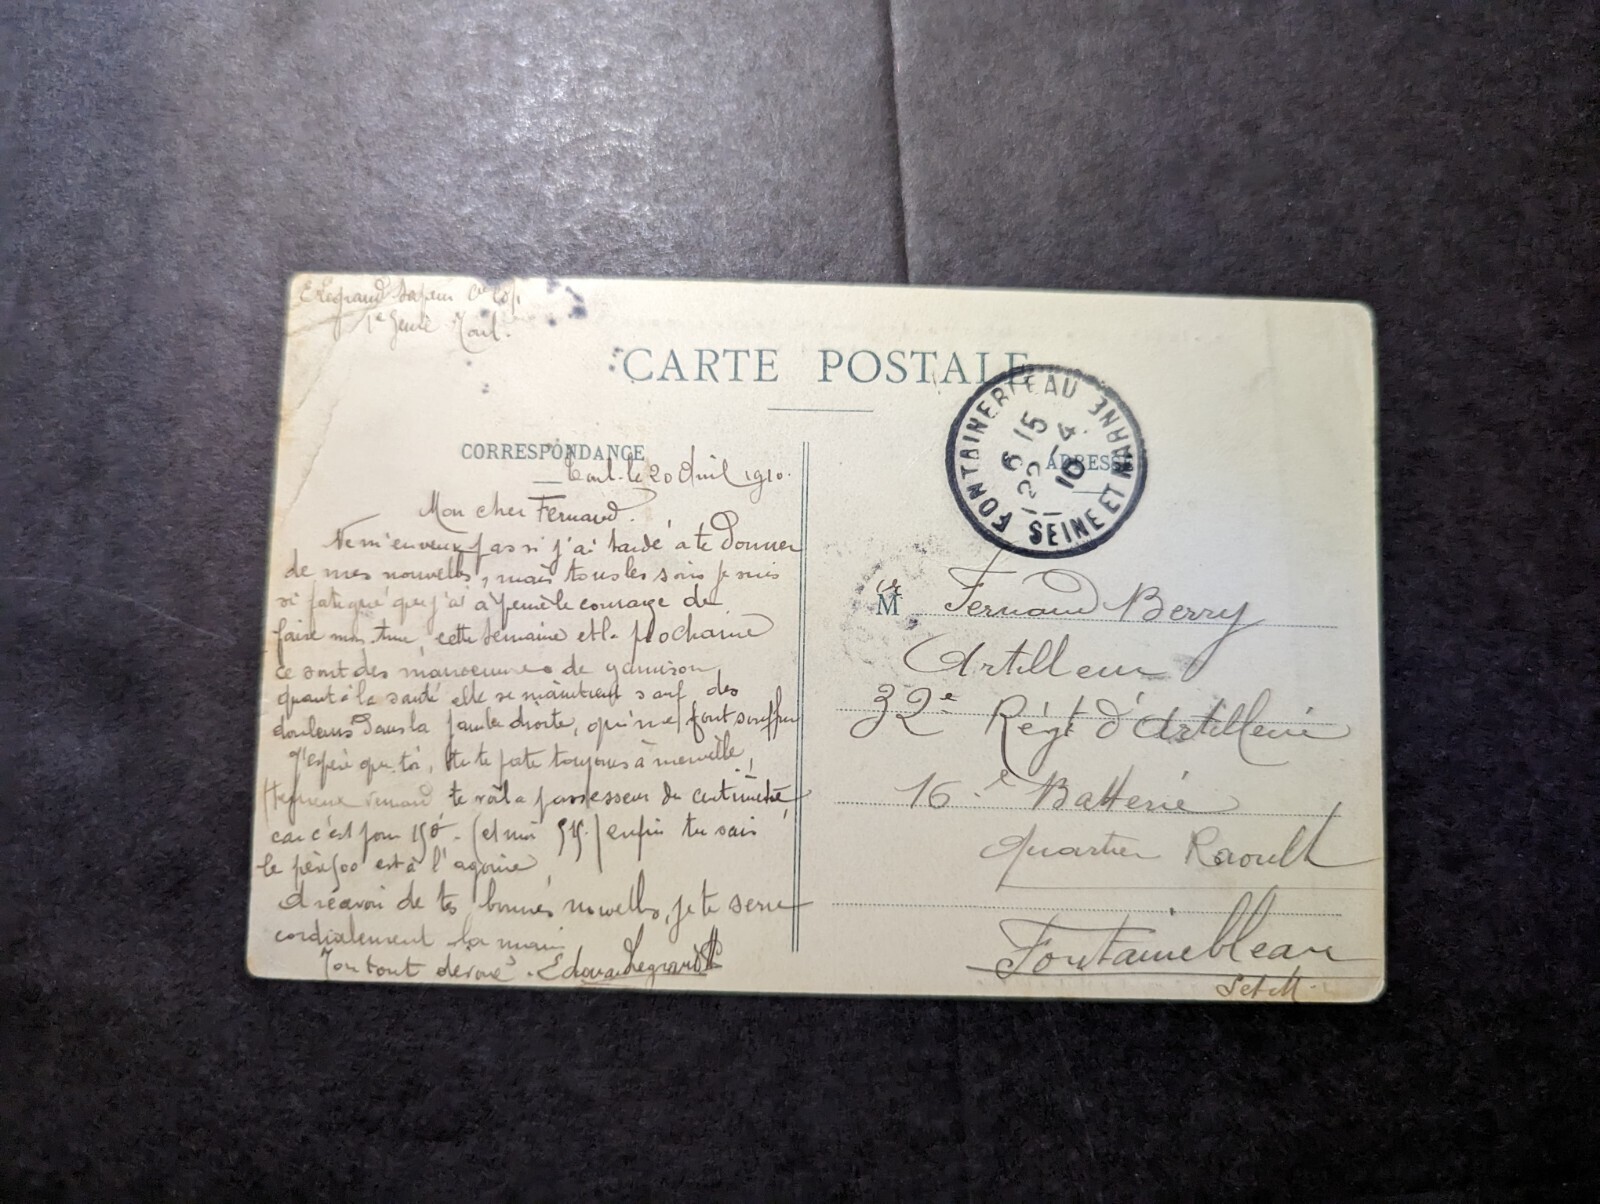 E Legrand Sapeur Cie
1er Génie Toul.
CARTE POSTALE
CORRESPONDANCE
Toul. le 20 Avril 1910.
Mon cher Fernand.
Ne m'en veux pas si j'ai tardé à te donner
de mes nouvelles, mais tous les soirs je suis
si fatigué que j'ai à peine le courage de
faire mon cette semaine et la prochaine
ce sont des manoeuvres de garnison,
quant à la santé elle se maintient sauf des
douleurs dans la jambe droite, qui me font souffrir
J'espère que toi, tu te porte toujours à merveille,
te voilà possesseur du centimètre
car c'est pour 150. (et moi 515) enfin tu sais
le père 500 est à l'agonie,
de tes bonnes nouvelles, je te serre
cordialement la main
Ton tout dévoué. Edouard Legrand
FONTAINEBLEAU
6 15
22 - 4
10
SEINE ET MARNE
ADRESSE
M r Fernand Berry
Artilleur
32e Régt d'Artillerie
16e Batterie
Quartier Raoult
Fontainebleau
S et M.